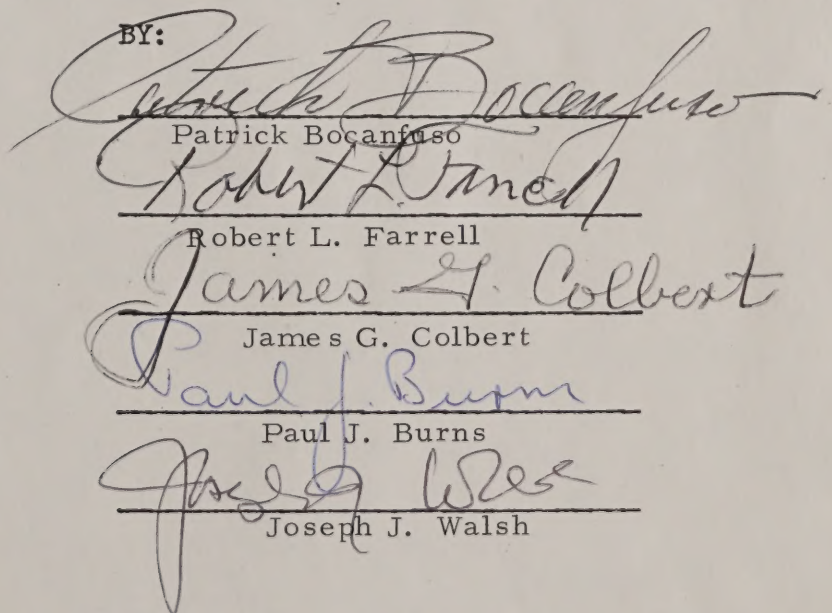 BY:
Patrick Bocanfuso
Patrick Bocanfuso
Robert L. Farrell
Robert L. Farrell
James G. Colbert
James G. Colbert
Paul J. Burns
Paul J. Burns
Joseph J. Walsh
Joseph J. Walsh